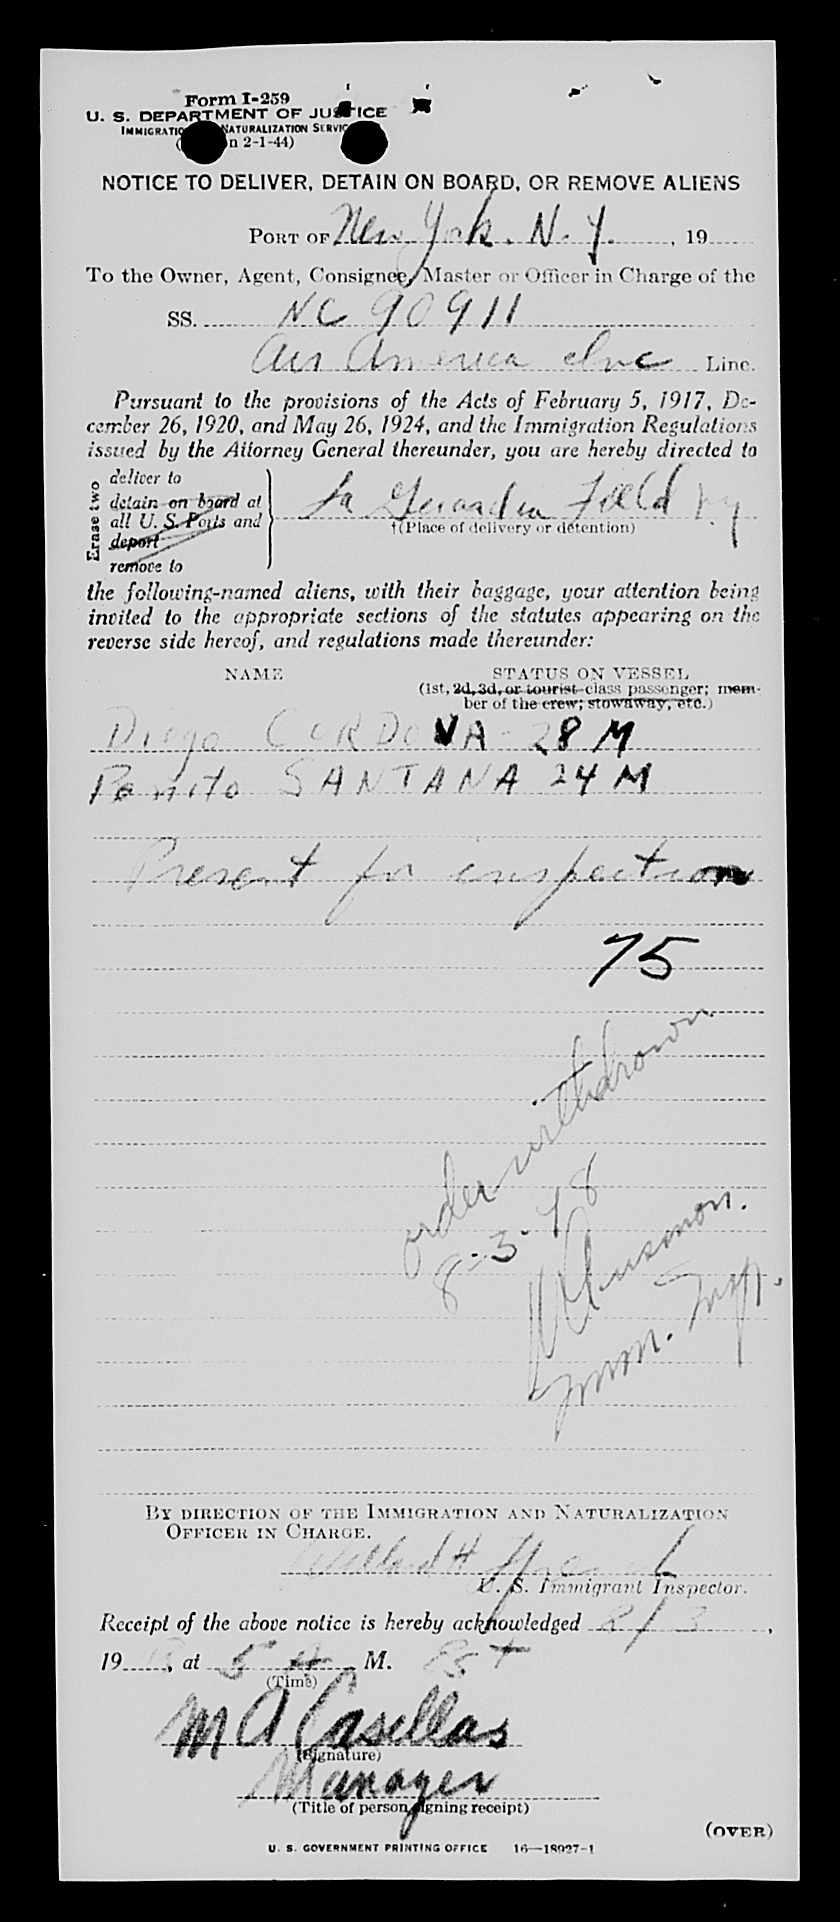 Form I-259
U. S. DEPARTMENT OF JUSTICE
IMMIGRATION NATURALIZATION SERVICE
2-1-44)
NOTICE TO DELIVER, DETAIN ON BOARD, OR REMOVE ALIENS
PORT OF New York. N. Y. , 19
To the Owner, Agent, Consignee, Master or Officer in Charge of the
SS. NC 90911
Air America Inc Line.
Pursuant to the provisions of the Acts of February 5, 1917, De-
cember 26, 1920, and May 26, 1924, and the Immigration Regulations
issued by the Attorney General thereunder, you are hereby directed to
Erase two
deliver to
detain on board at
all U. S. Ports and
deport
remove to
La Guardia Field NY
†(Place of delivery or detention)
the following-named aliens, with their baggage, your attention being
invited to the appropriate sections of the statutes appearing on the
reverse side hereof, and regulations made thereunder:
NAME STATUS ON VESSEL
(1st, 2d, 3d, or tourist-class passenger; mem-
ber of the crew; stowaway, etc.)
Diego CORDOVA - 28 M
Benito SANTANA 24 M
Present for inspection
75
order withdrawn
8-3-48
Imm. Insp.
BY DIRECTION OF THE IMMIGRATION AND NATURALIZATION
OFFICER IN CHARGE.
U. S. Immigrant Inspector.
Receipt of the above notice is hereby acknowledged 8/3 ,
19 , at 5 A M.
(Time)
M A Casellas
(Signature)
Manager
(Title of person signing receipt)
(OVER)
U. S. GOVERNMENT PRINTING OFFICE 16—18027-1